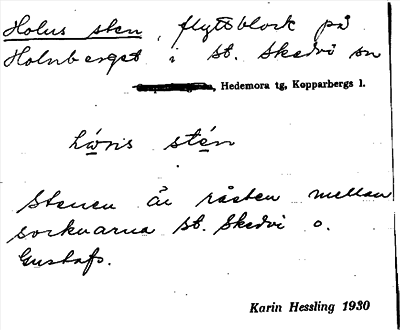 Holus sten, flyttblock på
Holnberget i St. Skedvi sn
, Hedemora tg, Kopparbergs l.
stén
Stenen är råsten mellan
socknarna St. Skedvi o.
Gustafs.
Karin Hessling 1930